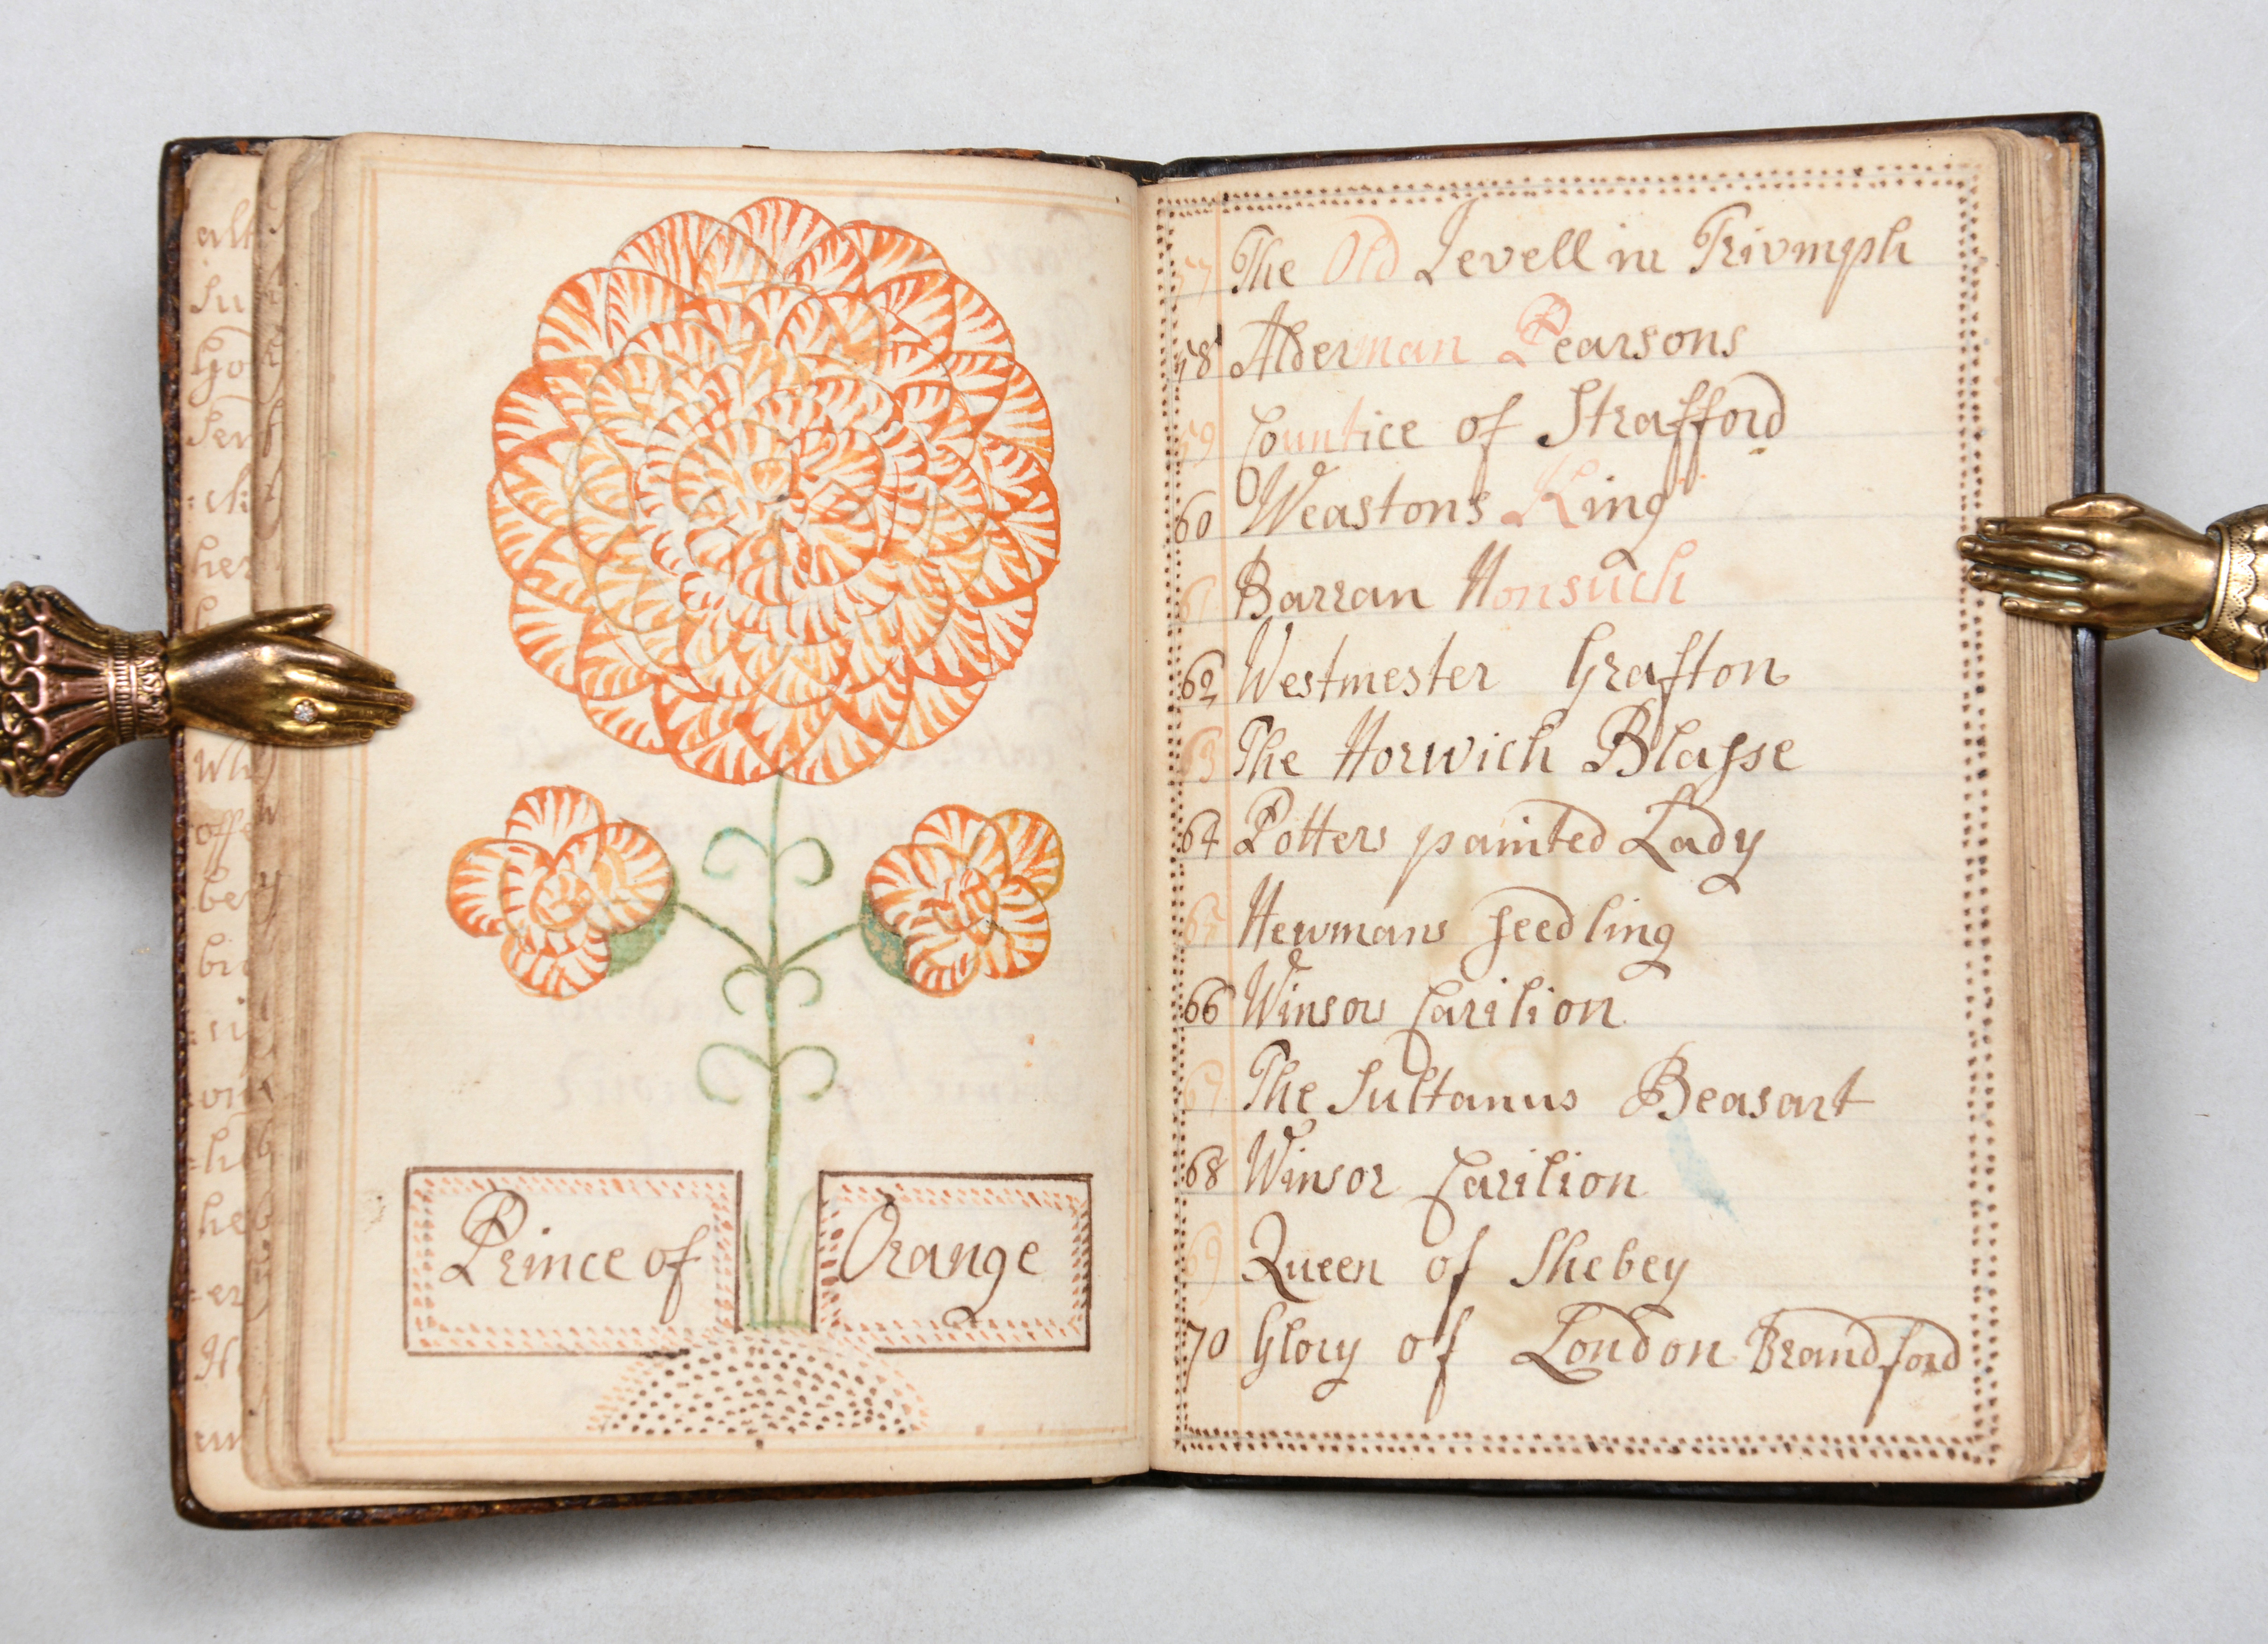 alt
su
Go
Ser
ch
her
Wh
offe
be
bi
ni
on
hi
he
er
em
Prince of Orange
57 The Old Jevell in Trivmph
58 Alderman Pearsons
59 Countice of Strafford
60 Weastons King
61 Barran Nonsuch
62 Westmester Grafton
63 The Norwich Blasse
64 Potters painted Lady
65 Newmans seedling
66 Winsor Carilion
67 The Sultanus Beasart
68 Winsor Carilion
69 Queen of Shebey
70 Glory of London Brandford